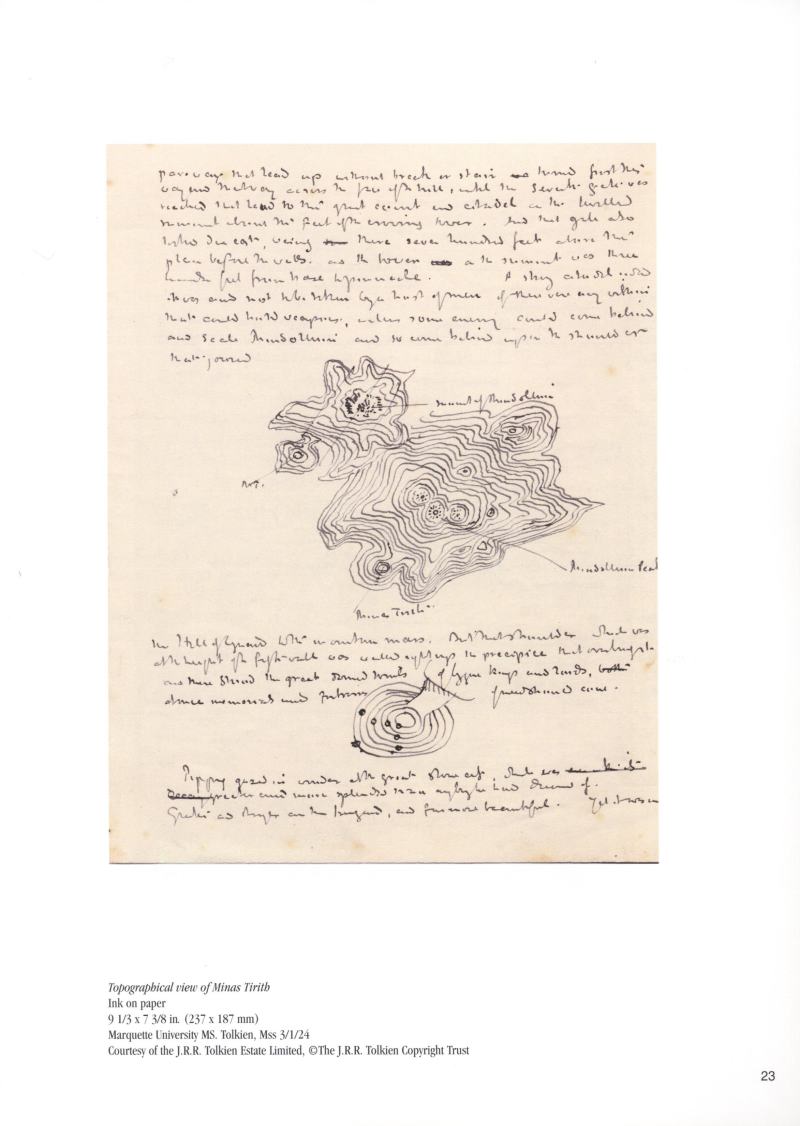 up without break or stair
way and that way across the face of the hill, until the seventh gate was
reached that lead to the great court and citadel on the levelled
summit about the feet of the crowning tower. And that gate also
looked due east, being there seven hundred feet above the
plain before the walls. as the tower at the summit was three
feet from base to pinnacle. A strong citadel
and not to be taken by a host of men if there were any within
that could hold weapons, unless some enemy could come behind
and scale Mindolluin and so come behind upon the shoulder
that joined
summit of Mindolluin
Mindolluin Peak
Minas Tirith
the Hill of Guard to the mountain mass. But that shoulder which was
at the height of the fifth wall was walled right up to the precipice that overhung it
and there stood the great domed tombs of bygone kings and lords,
Pippin gazed in wonder at the great stone city,
greater and more splendid than anything he had dreamed of.
Greater and stronger than Isengard, and far more beautiful. Yet it was in
Topographical view of Minas Tirith
Ink on paper
9 1/3 x 7 3/8 in. (237 x 187 mm)
Marquette University MS. Tolkien, Mss 3/1/24
Courtesy of the J.R.R. Tolkien Estate Limited, ©The J.R.R. Tolkien Copyright Trust
23